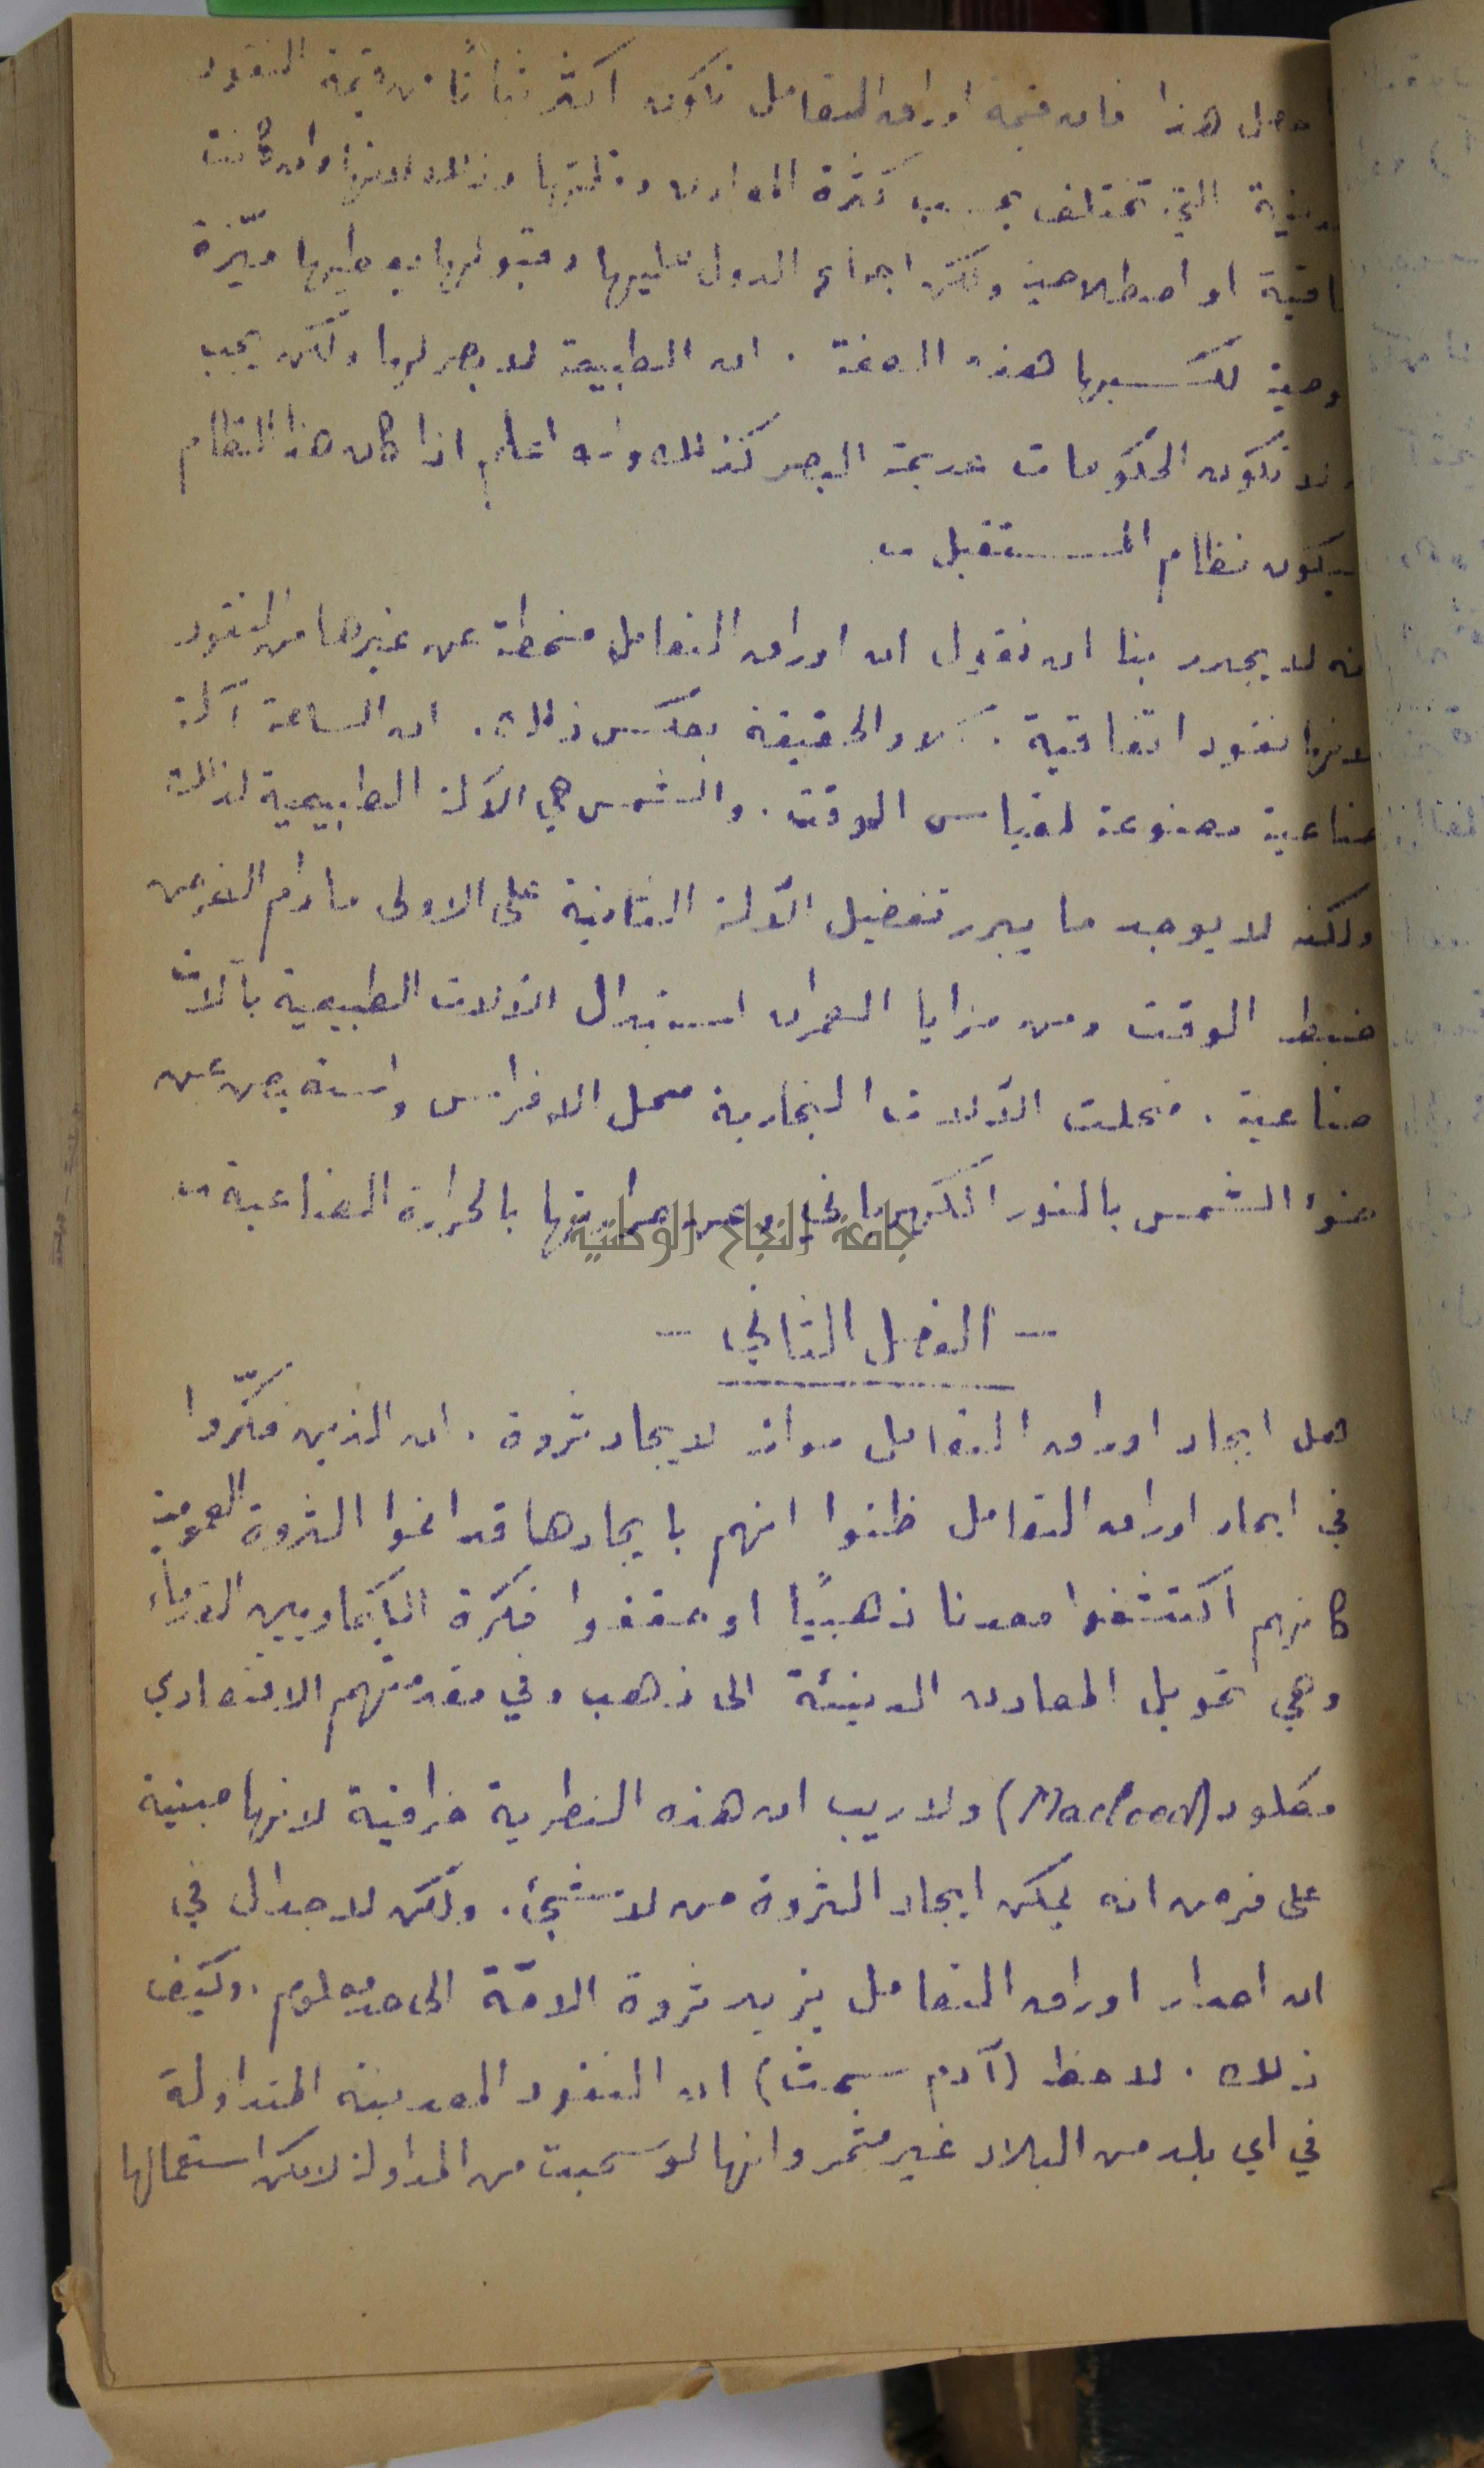 حصل هذا فان قيمة اوراق التعامل تكون اكثر ثباتًا من قيمة النقود
التي تختلف بحسب كثرة المعادن وقلتها وذلك لانها وان كانت
او اصطلاحية ولكن اجماع الدول عليها وقبولها يعطيها ميّزة
تكسبها هذه الصفة . ان الطبيعة لا بصر لها ولكن يجب
ان لا تكون الحكومات عديمة البصر كذلك والله اعلم اذا كان هذا النظام
سيكون نظام المستقبل ..
انه لا يجدر بنا ان نقول ان اوراق التعامل منحطة عن غيرها من النقود
لانها نقود اتفاقية . كلا والحقيقة بعكس ذلك . ان الساعة آلة
صناعية مصنوعة لقياس الوقت . والشمس هي الآلة الطبيعية لذلك
ولكنه لا يوجد ما يبرر تفضيل الآلة الثانية على الاولى ما دام الغرض
ضبط الوقت ومن مزايا العمران استبدال الآلات الطبيعية بآلات
صناعية . فحلت الآلات البخارية محل الافراس واستعيض عن
ضوء الشمس بالنور الكهربائي وعن حرارتها بالحرارة الصناعية ..
جامعة النجاح الوطنية
- الفصل الثاني -
هل ايجاد اوراق التعامل مواز لايجاد ثروة . ان الذين فكّروا
في ايجاد اوراق التعامل ظنوا انهم بايجادها قد انموا الثروة العمومية
كانهم اكتشفوا معدنا ذهبيًا او حققوا فكرة الكيماويين القدماء
وهي تحويل المعادن الدنيئة الى ذهب وفي مقدمتهم الاقتصادي
مكلود (Macleod) ولا ريب ان هذه النظرية خرافية لانها مبنية
على فرض انه يمكن ايجاد الثروة من لا شيء . ولكن لا جدال في
ان اصدار اوراق التعامل يزيد ثروة الامّة الى حد معلوم . وكيف
ذلك . لاحظ (آدم سميث) ان النقود المعدنية المتداولة
في اي بلد من البلاد غير مثمر وانها لو سحبت من المداولة لامكن استعمالها